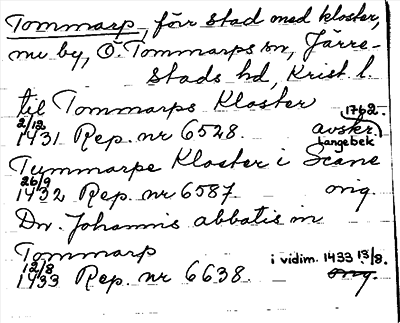 Tommarp, förr stad med kloster,
nu by, Ö. Tommarps sn, Järre-
stads hd, Krist. l.
til Tommarps Kloster
2/12 1762.
1431 Rep. nr 6528. avskr.
Langebek
Tummarpe Kloster i Scane
26/9
1432 Rep. nr 6587 orig.
Dn. Johannis abbatis in
Tommarp
12/8 i vidim. 1433 13/8.
1433 Rep. nr 6638. orig.